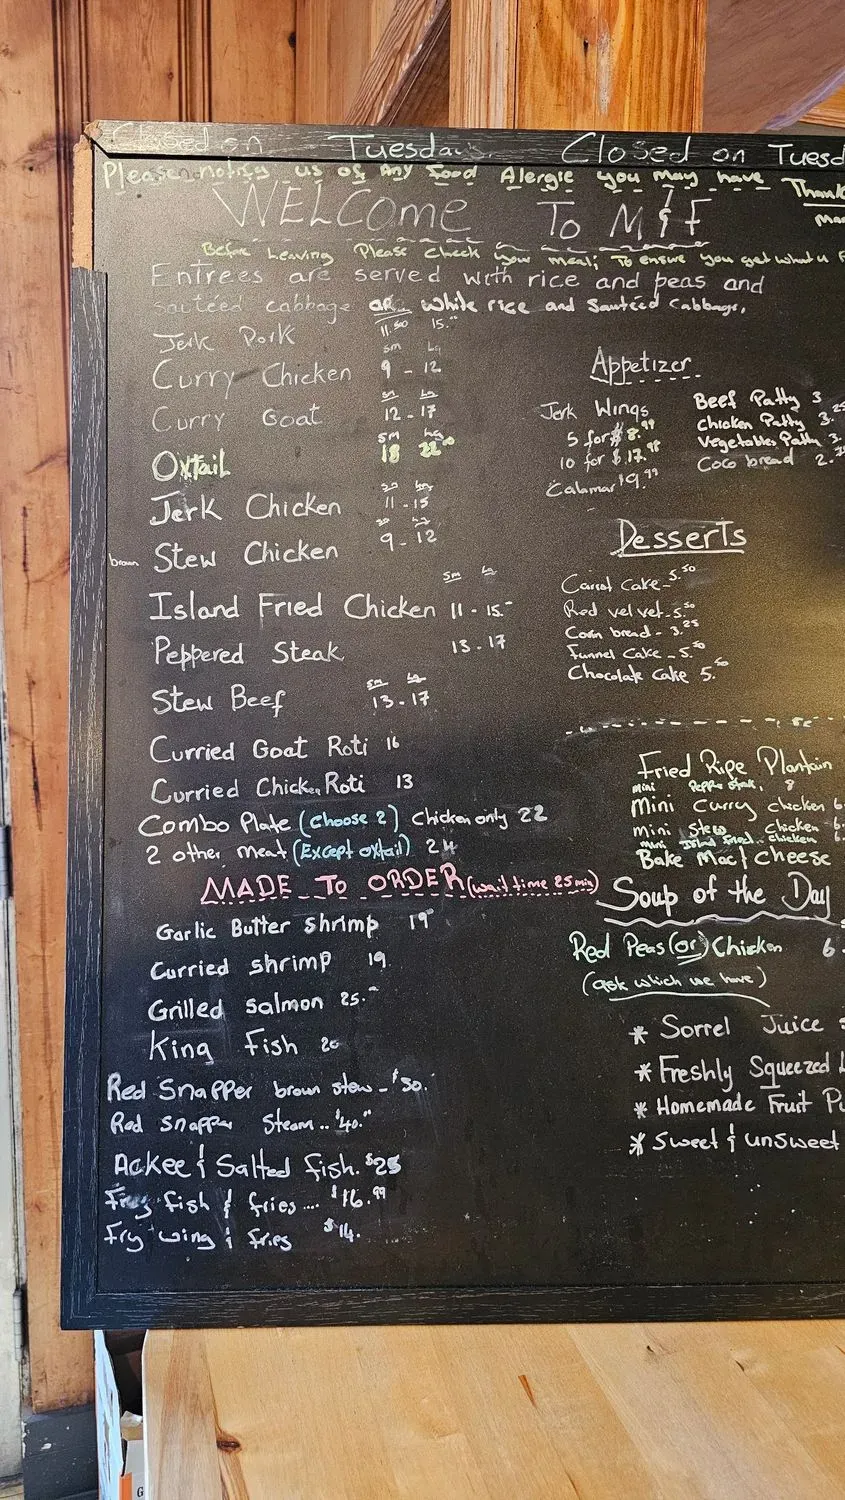 Closed on Tuesdays Closed on Tuesd
Please notify us of Any Food Allergie you may have Thank
WELCome To M & F
Before Leaving Please Check your meal; To ensure you get what u
Entrees are served with rice and peas and
sautéed cabbage OR white rice and Sautéed Cabbage.
11.50 15.
Jerk Pork
sm Lg
Curry Chicken 9 - 12
sm Lg
Curry Goat 12 - 17
sm Lg
Oxtail 18 22.00
Jerk Chicken 11 - 15
brown Stew Chicken 9 - 12
sm La
Island Fried Chicken 11 - 15.
Peppered Steak 13 - 17
sm La
Stew Beef 13 - 17
Curried Goat Roti 16
Curried Chicken Roti 13
Combo Plate (Choose 2) Chicken only 22
2 other meat (Except oxtail) 24
MADE To ORDER (wait time 25 min)
Garlic Butter Shrimp 19
Curried Shrimp 19
Grilled Salmon 25.
King Fish 20
Red Snapper brown stew - $30.
Red Snapper Steam .. $40.
Ackee & Salted fish. $25
Fry fish & fries .... $16.99
Fry wing & fries $14.
Appetizer
Jerk Wings
5 for $8.99
10 for $17.98
Calamari 9.99
Beef Patty 3
Chicken Patty 3.25
Vegetables Patty 3.
Coco bread 2.
Desserts
Carrot Cake - 5.50
Red velvet - 5.50
Corn bread - 3.25
Funnel Cake - 5.50
Chocolate Cake 5.50
Fried Ripe Plantain
mini Peppe steak. 8
Mini Curry chicken 6.
mini Stew Chicken 6.
mini Island Fried chicken 6.
Bake Mac & Cheese
Soup of the Day
Red Peas (or) Chicken 6.
(ask which we have)
* Sorrel Juice
* Freshly Squeezed
* Homemade Fruit Pu
* Sweet & unsweet